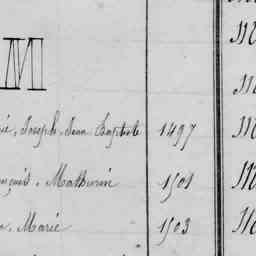 M
M
M
ié, Joseph Jean Baptiste 1497 M
ançois, Mathurin 1501 M
Marie 1503 M